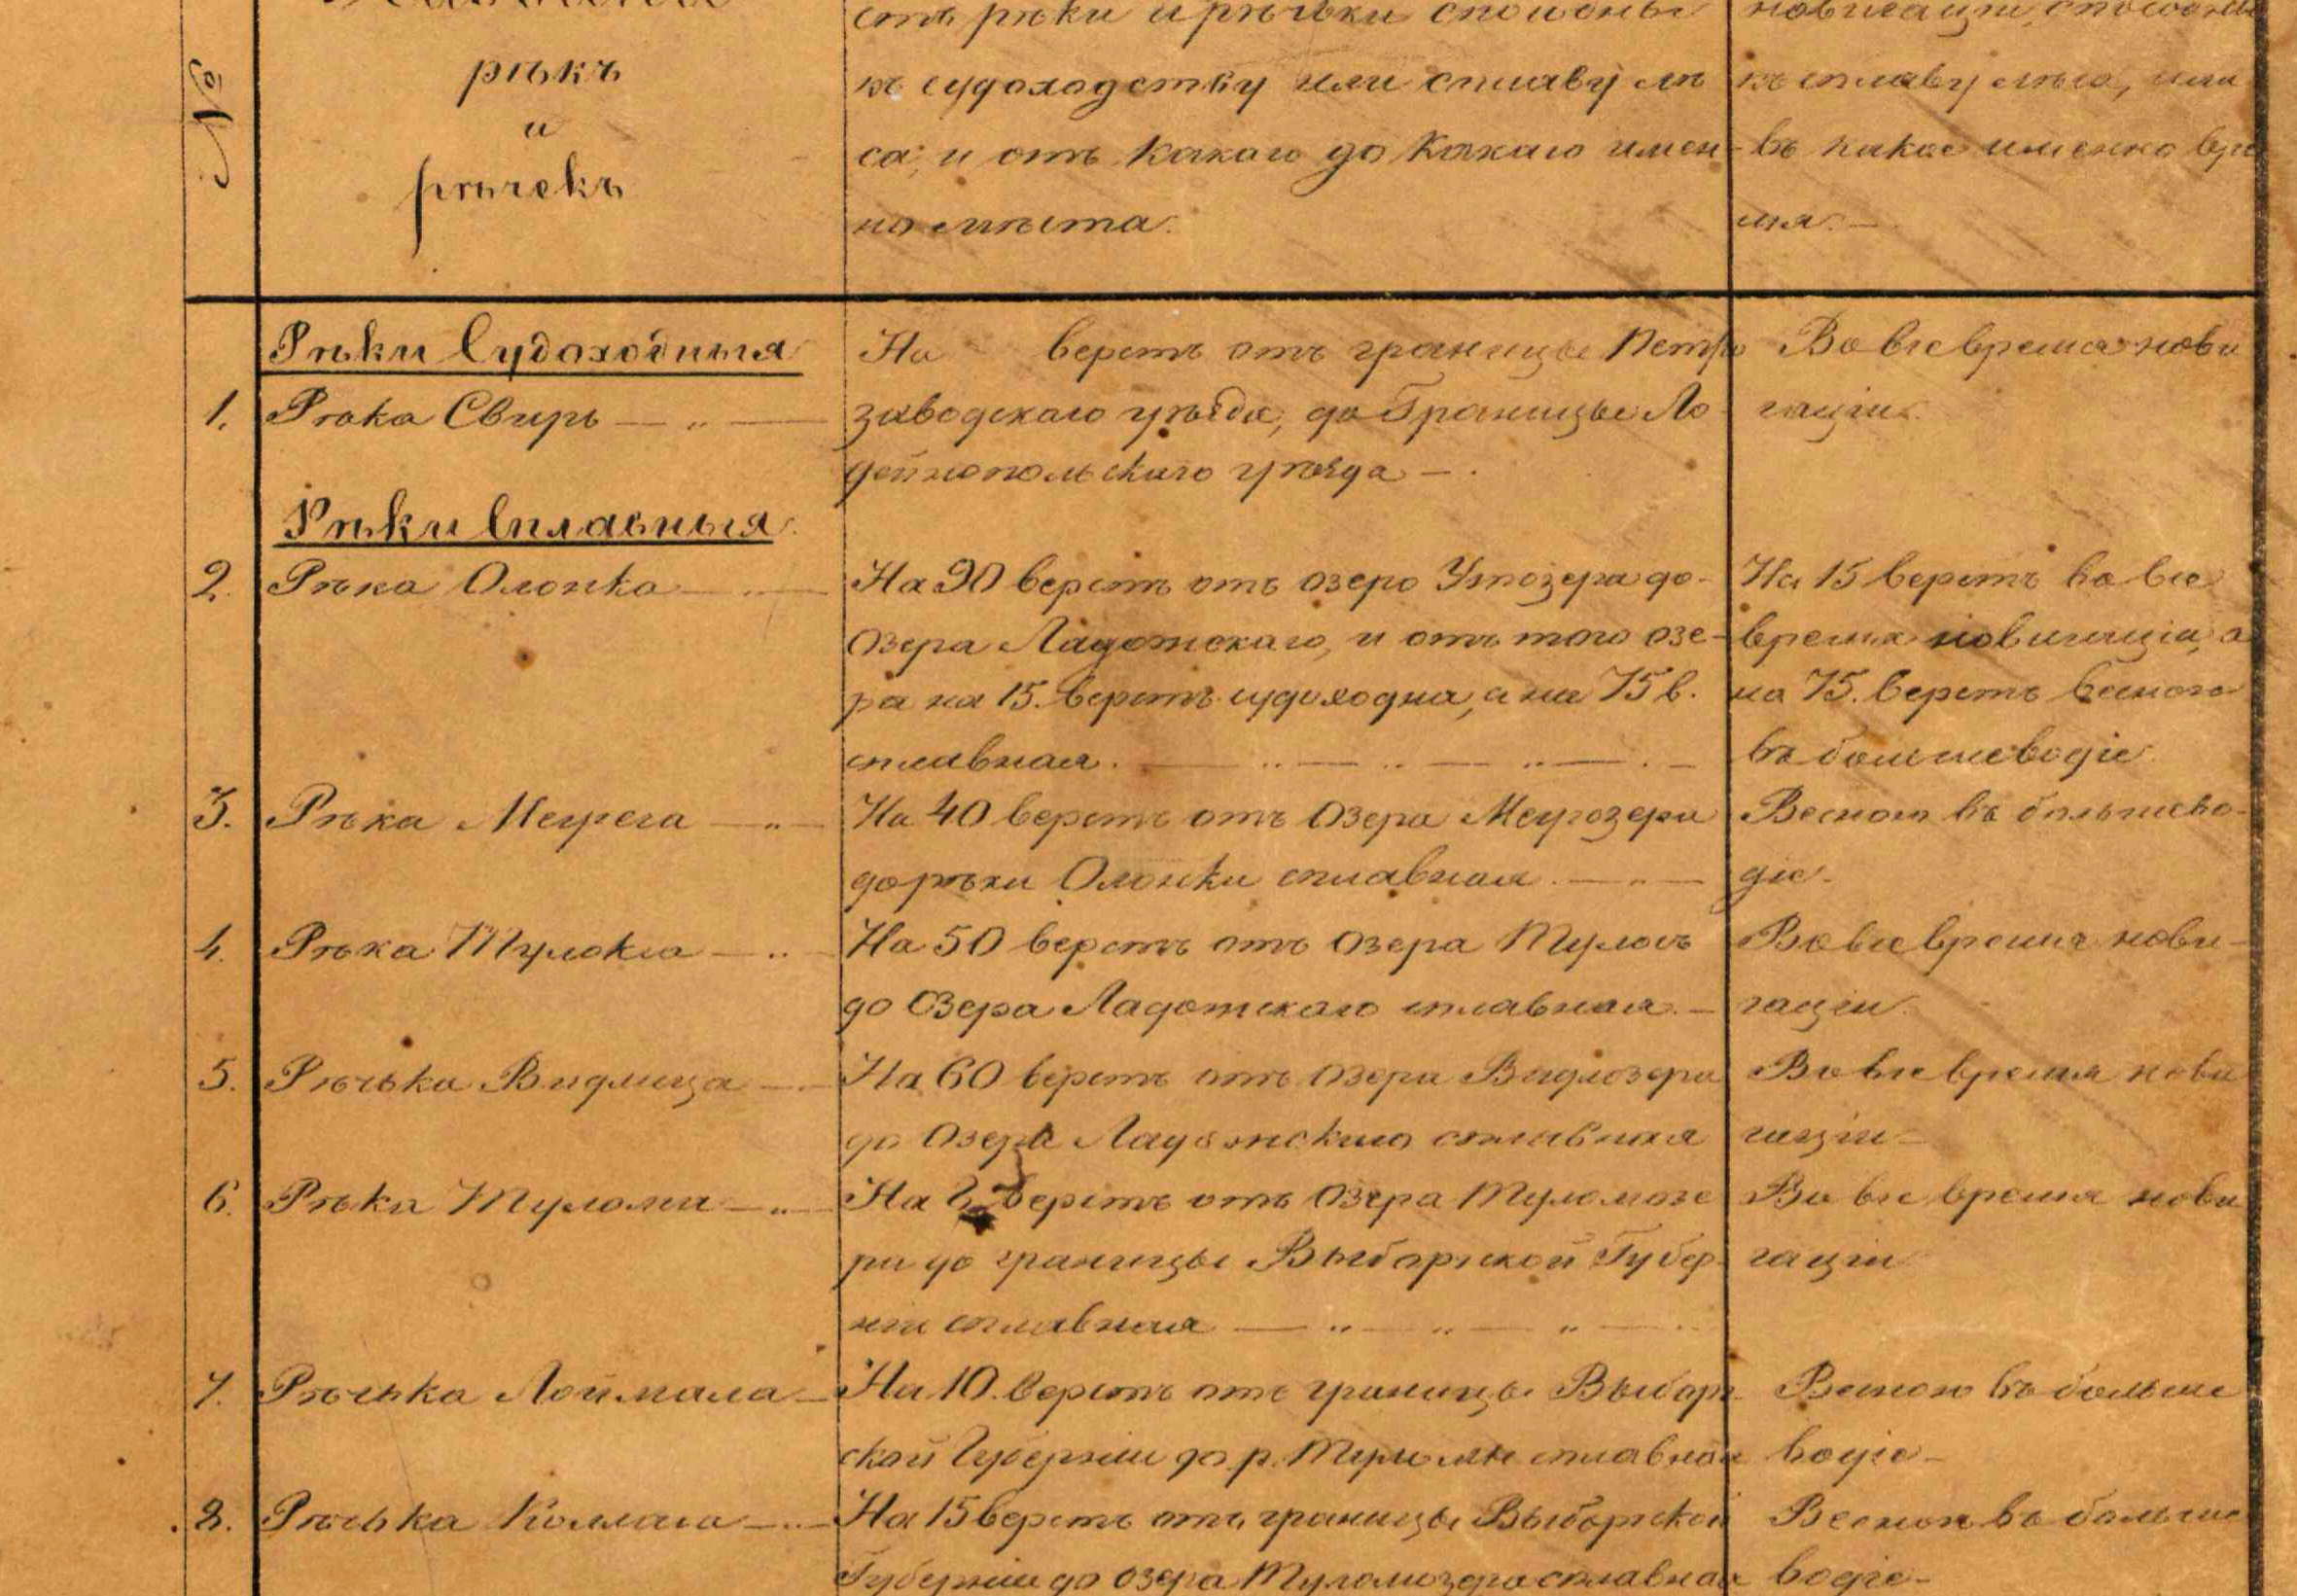 №
рѣкъ
и
рѣчекъ
сть рѣки и рѣчьки способны
къ судоходстку или сплаву лѣ
са, и отъ какаго до какаго имен-
но мѣста.
къ сплаву лѣса, или
въ какое именно вре
мя. —
Рѣки Судоходныя
На верстъ отъ границы Петро
Во все время нави
1. Рѣка Свирь — „ —
заводскаго уѣзда, до границы Ло
гаціи.
дейнопольскаго уѣзда —.
Рѣки Сплавныя.
2. Рѣка Олонка
На 90 верстъ отъ озеро Утозера до-
На 15 верстъ во все
Озера Ладожскаго, и отъ того озе-
время навигаціи, а
ра на 15. верстъ судоходна, а на 75 в.
на 75. верстъ весною
сплавная.
въ большеводіе.
3. Рѣка Мегрега — „ —
На 40 верстъ отъ Озера Мегрозера
Весною въ большево-
до рѣки Олонки сплавная. — „ —
діе.
4. Рѣка Тулокса — „
На 50 верстъ отъ Озера Тулосъ
Во все время нави-
до Озера Ладожскаго сплавная. —
гаціи.
5. Рѣчька Видлица —
На 60 верстъ отъ Озера Видлозера
Во все время нави
до Озера Ладожскаго сплавная
гаціи —
6. Рѣка Тулома — „ —
На верстъ отъ Озера Туломозе
Во все время нави
ра до границы Выборгской Губер-
гаціи
ніи сплавная — „ — „ — „ —
7. Рѣчька Лоймала —
На 10. верстъ отъ границы Выборг-
Весною въ больше
ской Губерніи до р. Туломы сплавная
водіе —
8. Рѣчька —
На 15 верстъ отъ границы Выборгской
Весною въ больше
Губерніи до озера Туломозера сплавная
водіе —